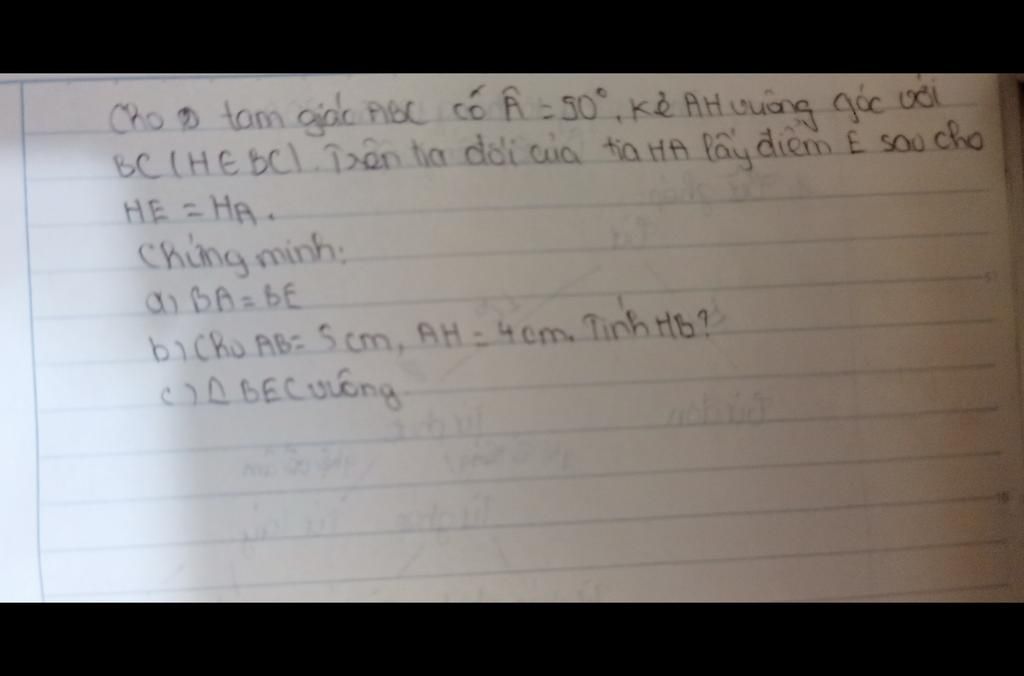 Cho tam giác ABC có Â = 90°. Kẻ AH vuông góc với
BC (H ∈ BC). Trên tia đối của tia HA lấy điểm E sao cho
HE = HA.
Chứng minh:
a) BA = BE
b) Cho AB = 5 cm, AH = 4 cm. Tính HB?
c) Δ BEC vuông